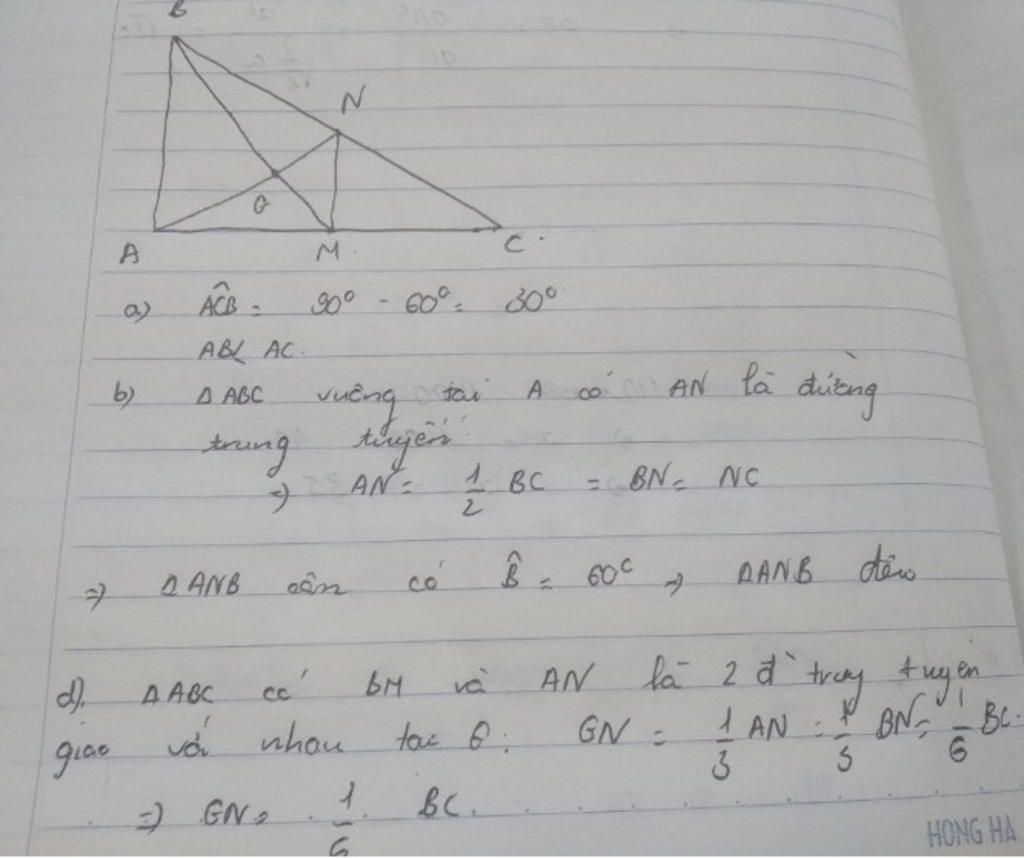 B
N
G
A
M
C
a) ACB̂ = 90° - 60° = 30°
AB< AC.
b) ΔABC vuông tại A có AN là đường
trung tuyến
=) AN = 1/2 BC = BN = NC
=) ΔANB cân có B̂ = 60° =) ΔANB đều
d). ΔABC có BM và AN là 2 đ` trung tuyến
giao với nhau tại G: GN = 1/3 AN = 1/3 BN = 1/6 BC.
=) GN = 1/6 BC.
HONG HA